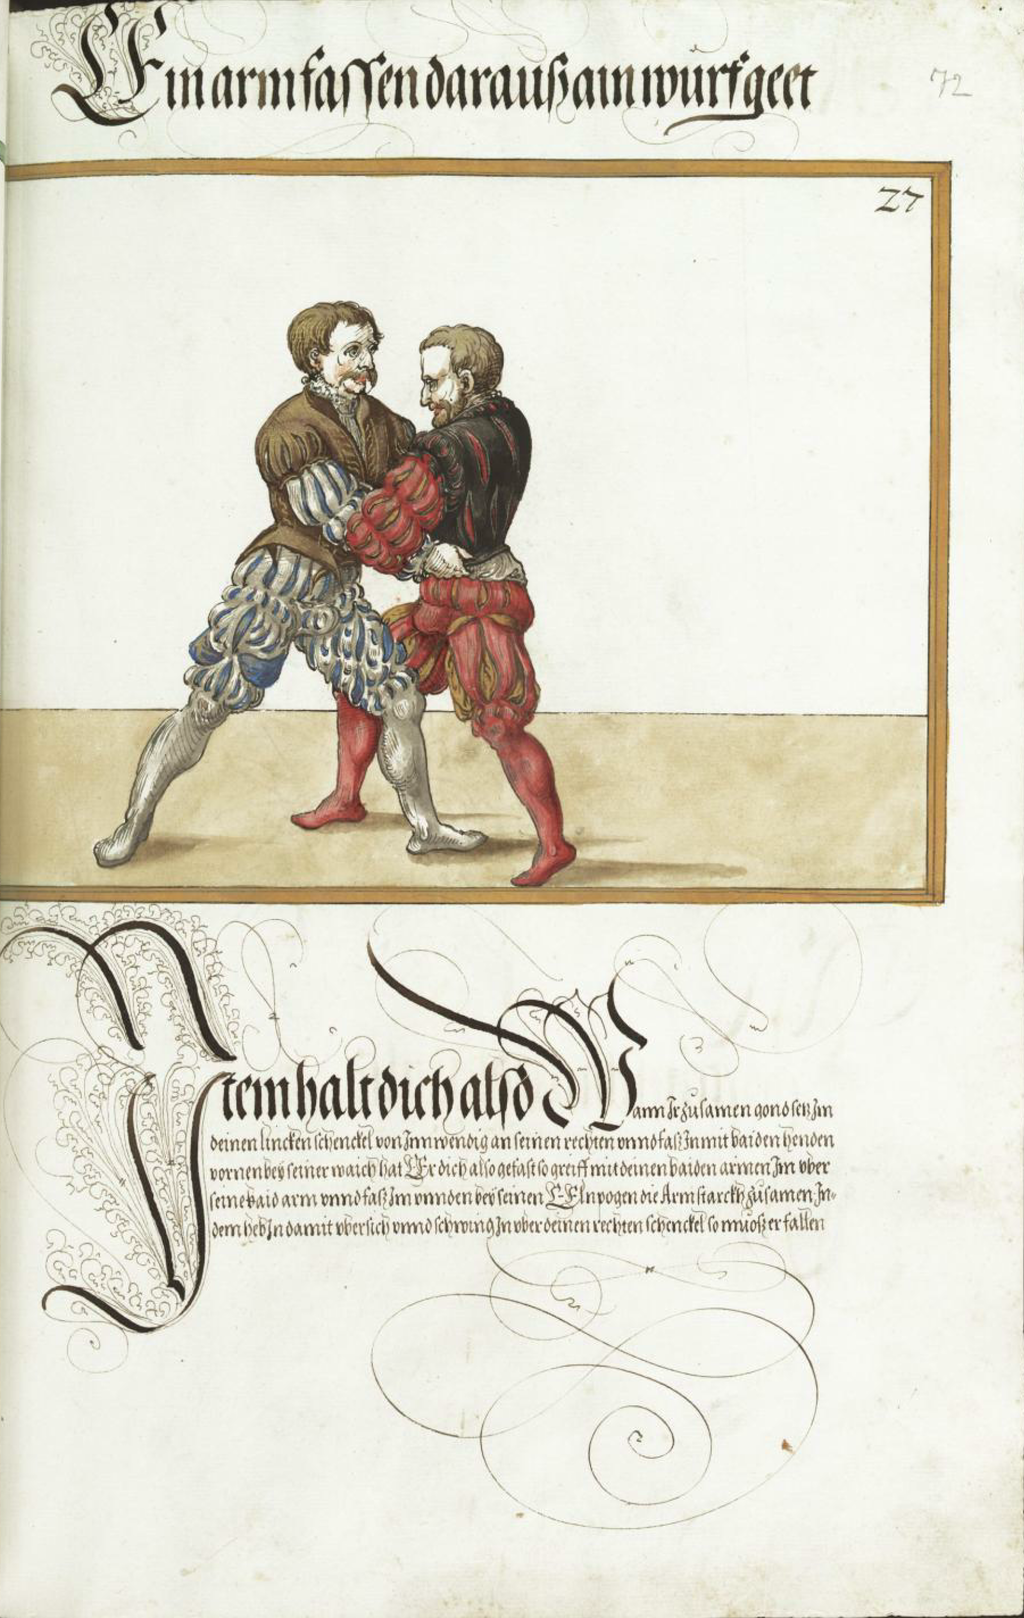 Ein arm fassen darauß ain wurf geet
72
27
Item halt dich also Wann Ir zusamen gond setz Im
deinen lincken schenckel von Innwendig an seinen rechten vnnd fas In mit baiden henden
vornen bey seiner waich hat Er dich also gefast so greiff mit deinen baiden armen Im vber
seine baid arm vnnd fas Im vnnden bey seinen Elnpogen die Arm starckh zusamen In-
dem heb In damit vbersich vnnd schwing In vber deinen rechten schenckel so muoß er fallen